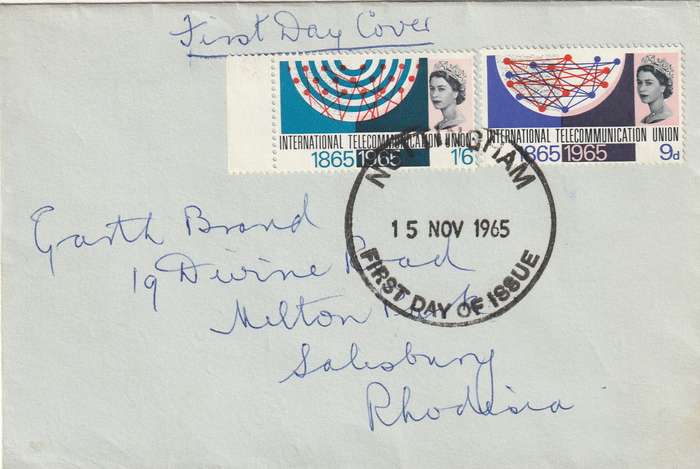 First Day Cover
INTERNATIONAL TELECOMMUNICATION UNION
1865 1965 1'6
INTERNATIONAL TELECOMMUNICATION UNION
1865 1965 9d
NOTTINGHAM
15 NOV 1965
FIRST DAY OF ISSUE
Garth Brand
19 Divine Road
Milton Park
Salisbury
Rhodesia